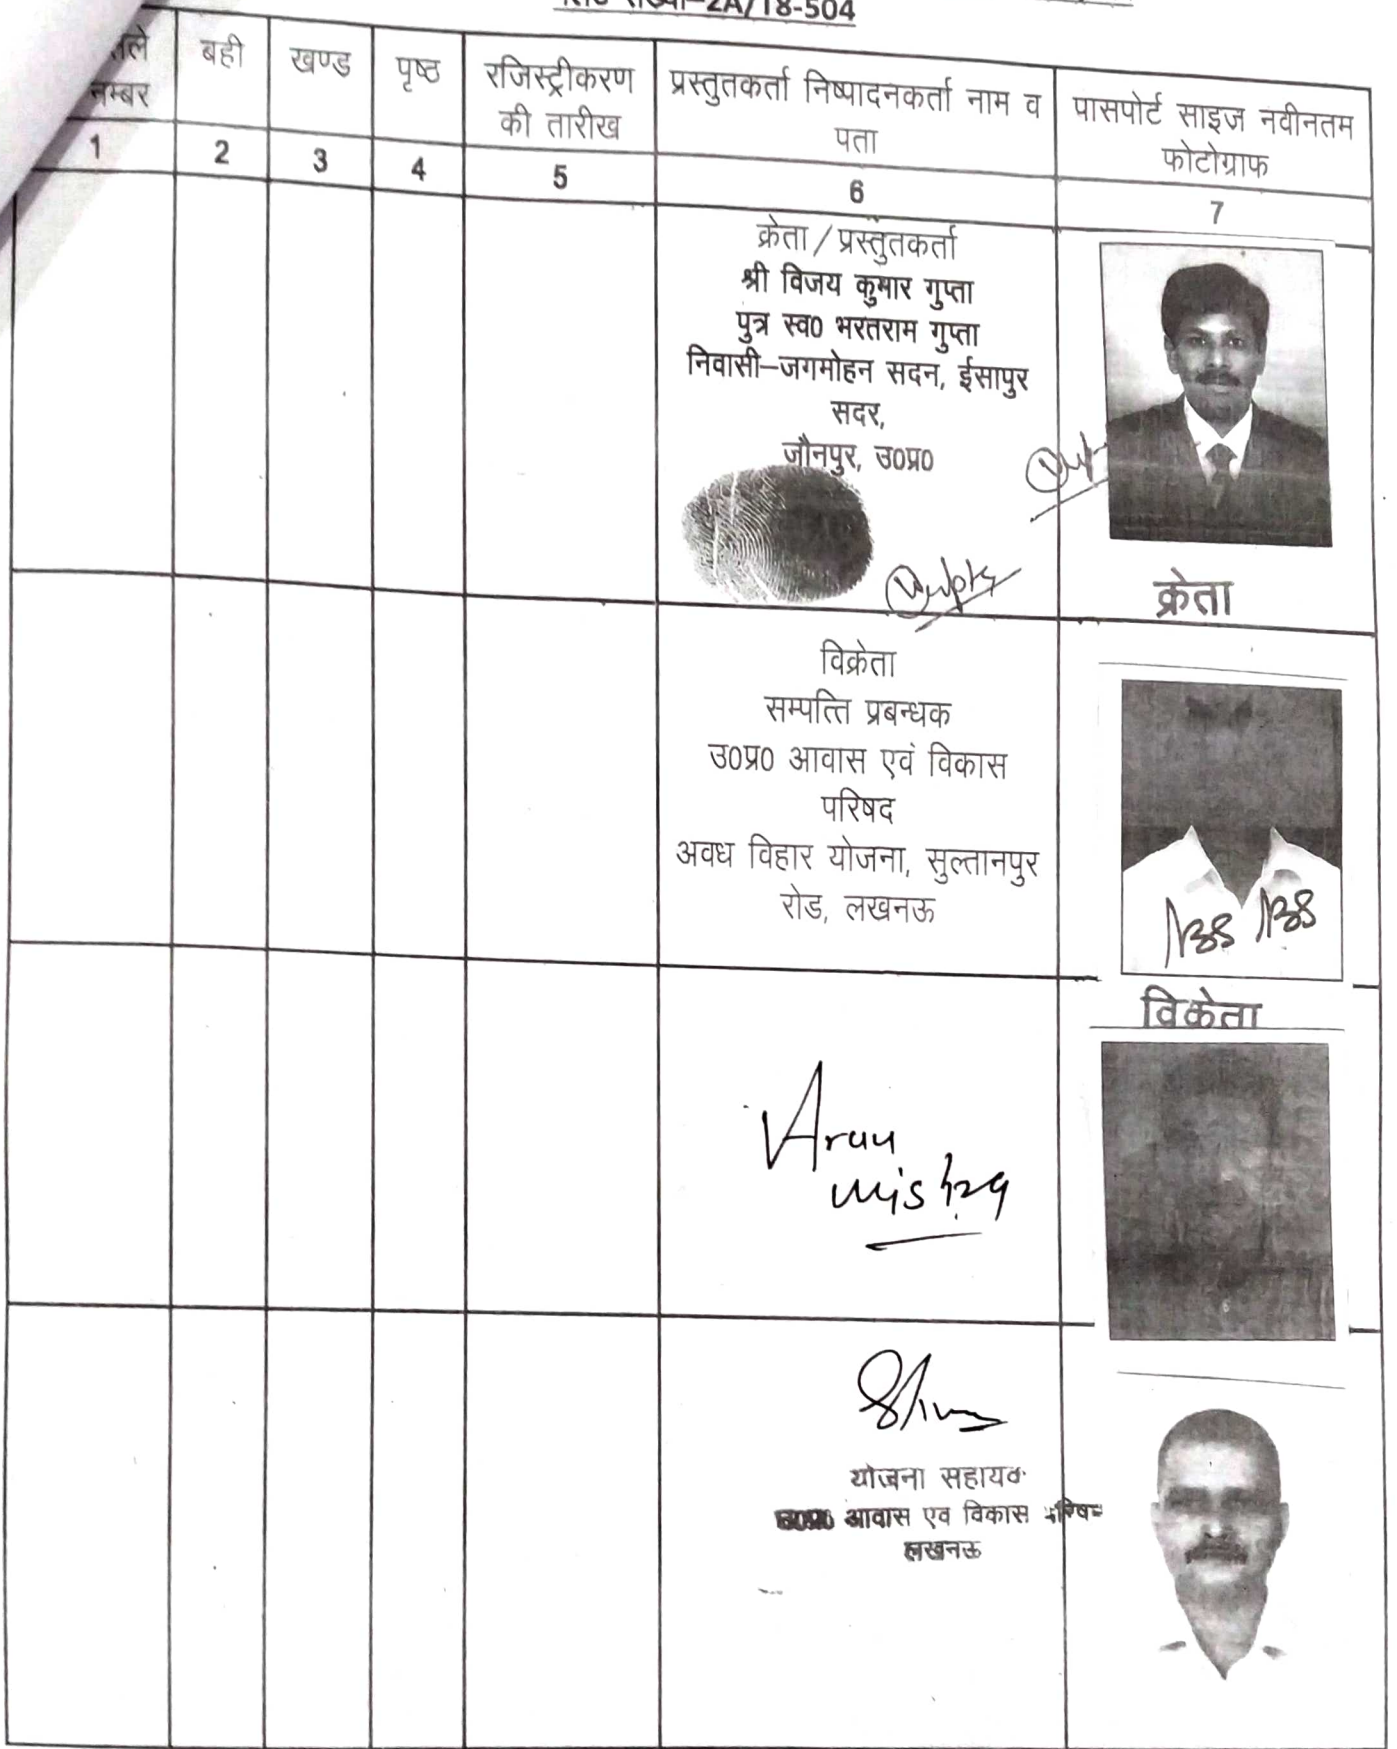 संख्या-2A/18-504
नम्बर
बही
खण्ड
पृष्ठ
रजिस्ट्रीकरण
की तारीख
प्रस्तुतकर्ता निष्पादनकर्ता नाम व
पता
पासपोर्ट साइज नवीनतम
फोटोग्राफ
1 2 3 4 5 6 7
क्रेता / प्रस्तुतकर्ता
श्री विजय कुमार गुप्ता
पुत्र स्व0 भरतराम गुप्ता
निवासी-जगमोहन सदन, ईसापुर
सदर,
जौनपुर, उ0प्र0
क्रेता
विक्रेता
सम्पत्ति प्रबन्धक
उ0प्र0 आवास एवं विकास
परिषद
अवध विहार योजना, सुल्तानपुर
रोड, लखनऊ
विकेता
Arun
Mishra
योजना सहायक
आवास एव विकास
लखनऊ